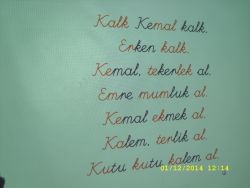 Kalk Kemal kalk.
Erken kalk.
Kemal, tekerlek al.
Emre mumluk al.
Kemal ekmek al.
Kalem, terlik al.
Kutu kutu kalem al.
01/12/2014 12:14